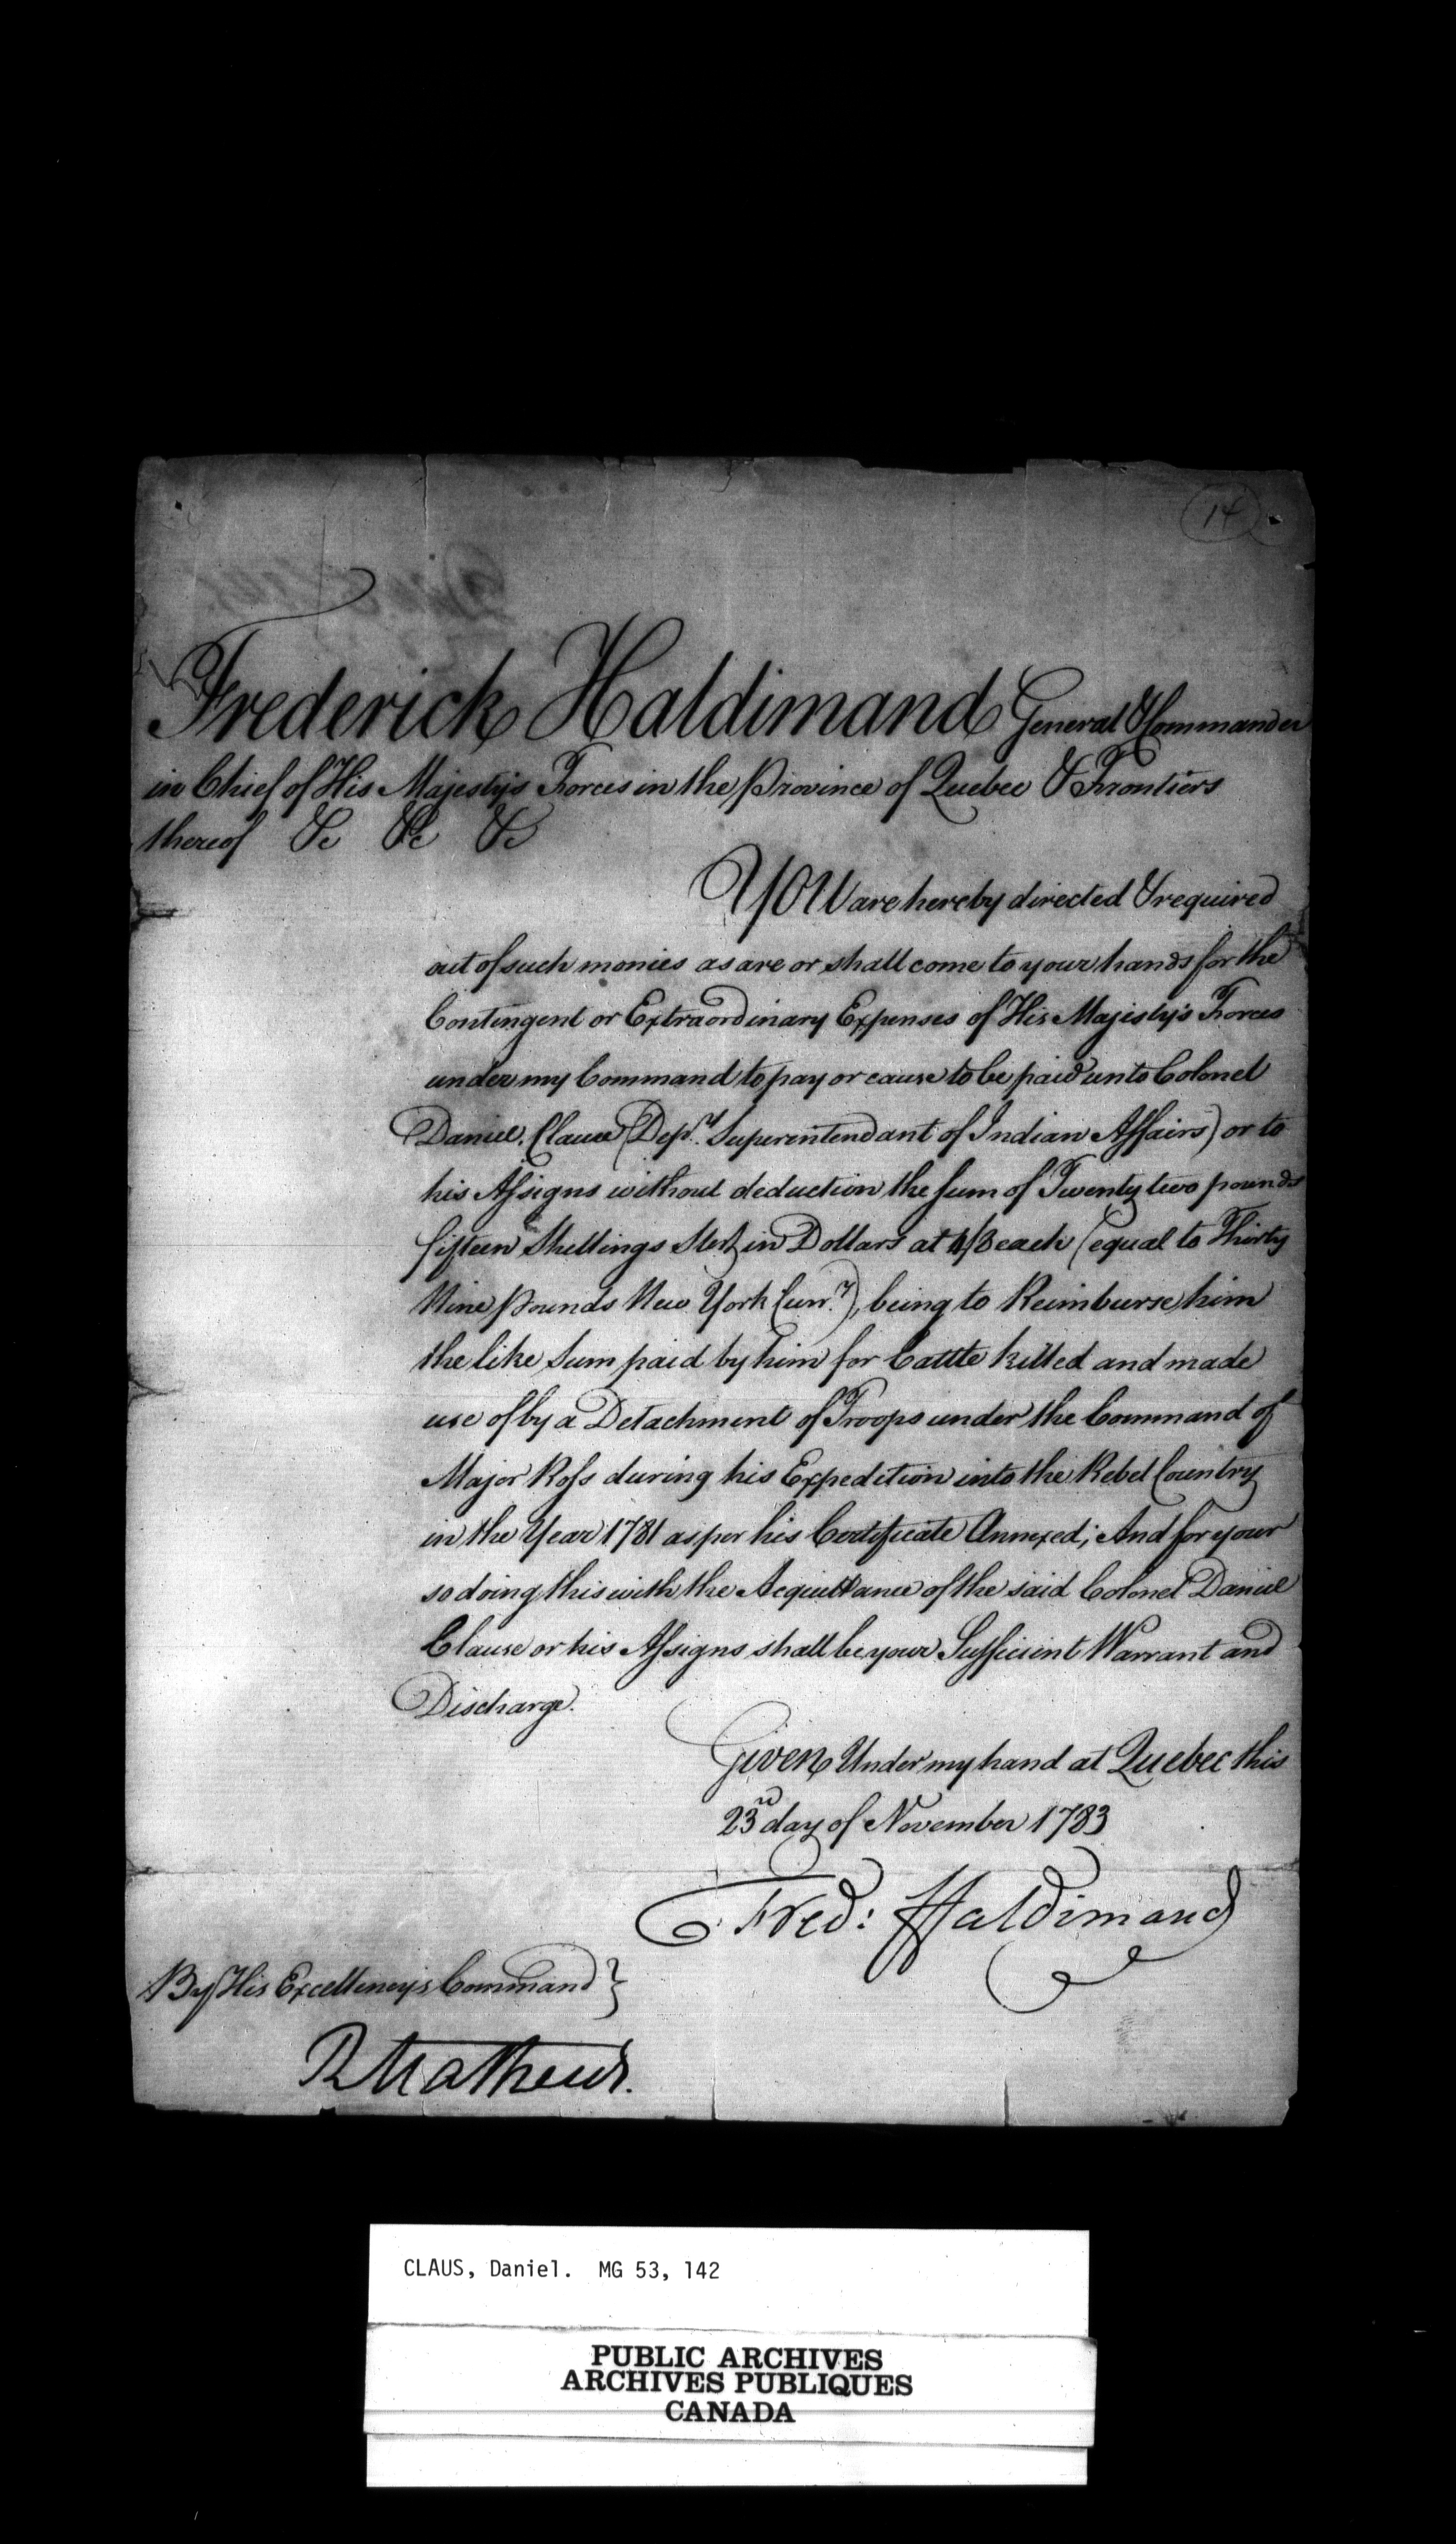 14
Frederick Haldimand General & Commander
in Chief of His Majesty's Forces in the Province of Quebec & Frontiers
thereof &c &c &c
YOU are hereby directed & required
out of such monies as are or shall come to your hands for the
Contingent or Extraordinary Expenses of His Majesty's Forces
under my Command to pay or cause to be paid unto Colonel
Daniel Clause (Depy. Superintendant of Indian Affairs) or to
his Assigns without deduction the sum of Twenty two pounds
fifteen Shillings Sterg in Dollars at 4/8 each (equal to Thirty
Nine pounds New York Curry.), being to Reimburse him
the like Sum paid by him for Cattle killed and made
use of by a Detachment of Troops under the Command of
Major Ross during his Expedition into the Rebel Country
in the Year 1781 as per his Certificate Annexed; And for your
so doing this with the Acquittance of the said Colonel Daniel
Clause or his Assigns shall be your Sufficient Warrant and
Discharge.
Given Under my hand at Quebec this
23d day of November 1783
Fred: Haldimand
By His Excellency's Command }
R Mathews.
CLAUS, Daniel. MG 53, 142
PUBLIC ARCHIVES
ARCHIVES PUBLIQUES
CANADA